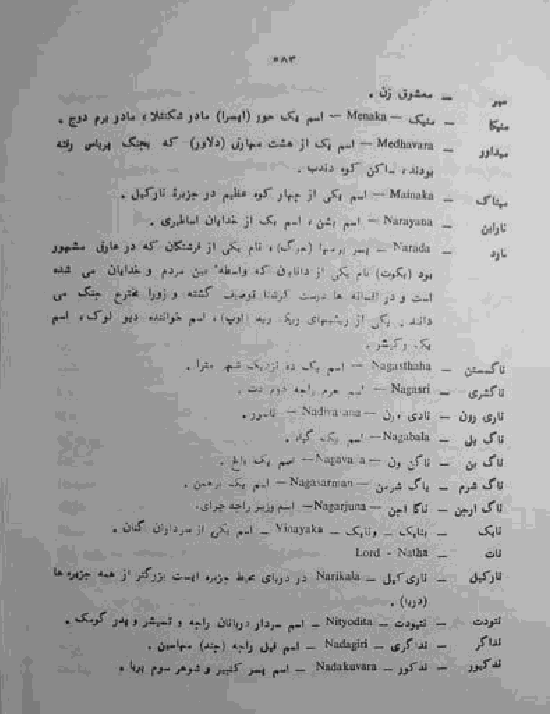 ۶۸۳
میر — معشوق زن .
منیکا — منیک — Menaka — اسم یک حور (اپسرا) مادر شکنتلا، مادر برم دوج .
میداور — Medhavara — اسم یک از هشت مهارتی (دلاور) که بجنگ پریاس رفته
بودند، ساکن کوه دندب .
میناک — Mainaka — اسم یکی از چهار کوه عظیم در جزیرهٔ نارکیل .
ناراین — Narayana — اسم بشن، اسم یک از خدایان اساطیری .
نارد — Narada — پسر برمها (مرگ)، نام یکی از فرشتگان که در عارفی مشهور
بود (بگوت) نام یکی از دانایان که واسطهٔ بین مردم و خدایان می شده
است و در افسانه ها دوست کرشنا توصیف گشته و زورا مخترع جنگ می
دانند . یکی از ریشیهای ریگ وید، اسم خواننده دیو لوک، اسم
یک وکیشر .
ناگستن — Nagasthaha — اسم یک ده نزدیک شهر مترا .
ناگشری — Nagasri — اسم حرم راجه
ناری رون — نادی ورن — — ناسور .
ناگ بل — Nagabala — اسم یک گیاه .
ناگ بن — ناگن ون — — اسم یک باغ .
ناگ شرم — ناگ شرمن — Nagasarman — اسم یک برهمن .
ناگ ارجن — ناگا اجن — Nagarjuna — اسم وزیر راجه چرای .
نایک — بنایک — ونایک — Vinayaka — اسم یکی از سرداران گنان .
نات — Lord - Natha
نارکیل — ناری کیل — Narikala در دریای محیط جزیره ایست بزرگتر از همه جزیره ها
(دریا) .
نتودت — نتیودت — Nityodita — اسم سردار دربانان راجه و نمیشر و پدر کرمک .
نداگر — نداگری — Nadagiri — اسم فیل راجه (چند) مهاسین .
ندکیور — ندکور — Nadakuvara — اسم پسر کنیر و شوهر سوم پربا .